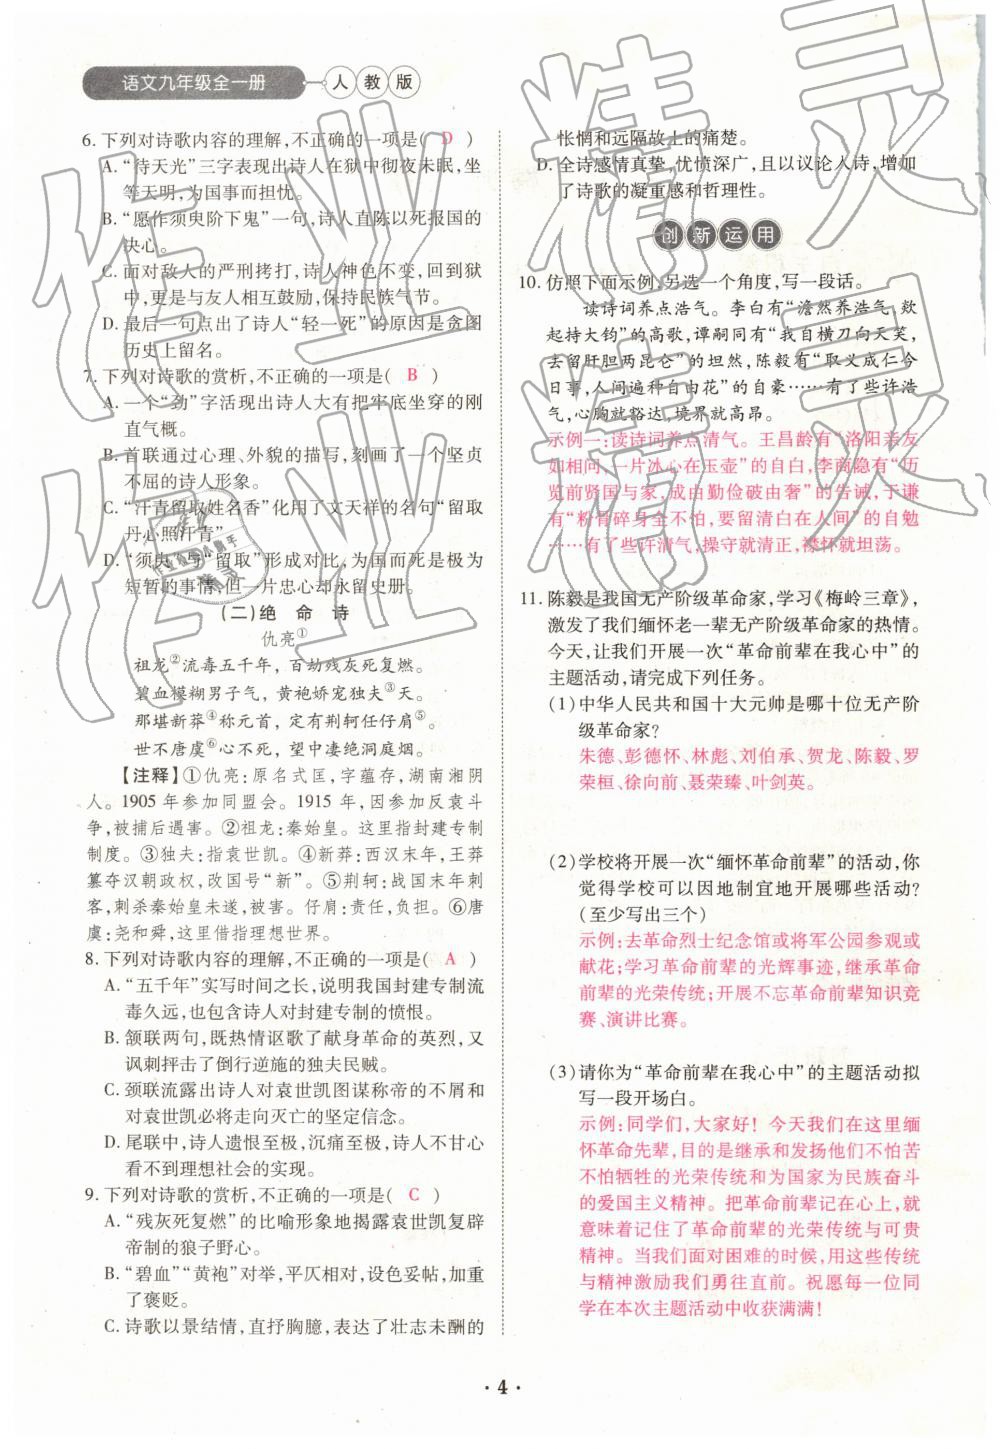 语文九年级全一册 人教版
6. 下列对诗歌内容的理解,不正确的一项是( D )
A. “待天光”三字表现出诗人在狱中彻夜未眠,坐
等天明,为国事而担忧。
B. “愿作须臾阶下鬼”一句,诗人直陈以死报国的
决心。
C. 面对敌人的严刑拷打,诗人神色不变,与难友
更是与人相互鼓励,保持民族气节。
D. 最后一句点出了诗人“轻一死”的原因是贪图
历史上留名。
7. 下列对诗歌的赏析,不正确的一项是( B )
A. 一个“劲”字活现出诗人大有把牢底坐穿的刚
直气概。
B. 首联通过心理、外貌的描写,刻画一个坚贞
不屈的诗人形象。
C. “汗青留取姓名香”化用了文天祥的名句“留取
丹心照汗青”
D. “须臾”与“留取”形成对比,为国而死是极为
短暂的事情,但一片忠心却永留史册。
(二)绝 命 诗
仇亮①
祖龙②流毒五千年，百劫残灰死复燃。
碧血模糊男子气，黄袍娇宠独夫③天。
那堪新莽④称元首，定有荆轲任仔肩⑤。
世不唐虞⑥心不死，望中凄绝洞庭烟。
【注释】①仇亮:原名式匡,字蕴存,湖南湘阴
人。1905 年参加同盟会。1915 年,因参加反袁斗
争,被捕后遇害。②祖龙:秦始皇。这里指封建专制
制度。③独夫:指袁世凯。④新莽:西汉末年,王莽
篡夺汉朝政权,改国号“新”。⑤荆轲:战国末年刺
客,刺杀秦始皇未遂,被害。仔肩:责任,负担。⑥唐
虞:尧和舜,这里借指理想世界。
8. 下列对诗歌内容的理解,不正确的一项是( A )
A. “五千年”实写时间之长,说明我国封建专制流
毒久远,也包含诗人对封建专制的愤恨。
B. 颔联两句,既热情讴歌了献身革命的英烈,又
讽刺抨击了倒行逆施的独夫民贼。
C. 颈联流露出诗人对袁世凯图谋称帝的不屑和
对袁世凯必将走向灭亡的坚定信念。
D. 尾联中,诗人遗恨至极,沉痛至极,诗人不甘心
看不到理想社会的实现。
9. 下列对诗歌的赏析,不正确的一项是( C )
A. “残灰死复燃”的比喻形象地揭露袁世凯复辟
帝制的狼子野心。
B. “碧血”“黄袍”对举,平仄相对,设色妥帖,加重
了褒贬。
C. 诗歌以景结情,直抒胸臆,表达了壮志未酬的
怅惘和远隔故土的痛楚。
D. 全诗感情真挚,忧愤深广,且以议论入诗,增加
了诗歌的凝重感和哲理性。
创新运用
10. 仿照下面示例,另选一个角度,写一段话。
读诗词养点浩气。李白有“澹然养浩气,欻
起持大钧”的高歌,谭嗣同有“我自横刀向天笑,
去留肝胆两昆仑”的坦然,陈毅有“取义成仁今
日事,人间遍种自由花”的自豪……有了些许浩
气,心胸就豁达,境界就高昂。
示例一:读诗词养点清气。王昌龄有“洛阳亲友
如相问,一片冰心在玉壶”的自白,李商隐有“历
览前贤国与家,成由勤俭破由奢”的告诫,于谦
有“粉骨碎身全不怕,要留清白在人间”的自勉
……有了些许清气,操守就清正,襟怀就坦荡。
11. 陈毅是我国无产阶级革命家,学习《梅岭三章》,
激发了我们缅怀老一辈无产阶级革命家的热情。
今天,让我们开展一次“革命前辈在我心中”的
主题活动,请完成下列任务。
(1)中华人民共和国十大元帅是哪十位无产阶
级革命家?
朱德、彭德怀、林彪、刘伯承、贺龙、陈毅、罗
荣桓、徐向前、聂荣臻、叶剑英。
(2)学校将开展一次“缅怀革命前辈”的活动,你
觉得学校可以因地制宜地开展哪些活动?
(至少写出三个)
示例:去革命烈士纪念馆或将军公园参观或
献花;学习革命前辈的光辉事迹,继承革命前
辈的光荣传统;开展不忘革命前辈知识竞
赛、演讲比赛。
(3)请你为“革命前辈在我心中”的主题活动拟
写一段开场白。
示例:同学们,大家好！今天我们在这里缅
怀革命先辈,目的是继承和发扬他们不怕苦
不怕牺牲的光荣传统和为国家为民族奋斗
的爱国主义精神。把革命前辈记在心上,就
意味着记住了革命前辈的光荣传统与可贵
精神。当我们面对困难的时候,用这些传统
与精神激励我们勇往直前。祝愿每一位同
学在本次主题活动中收获满满!
· 4 ·
作业精灵
作业精灵